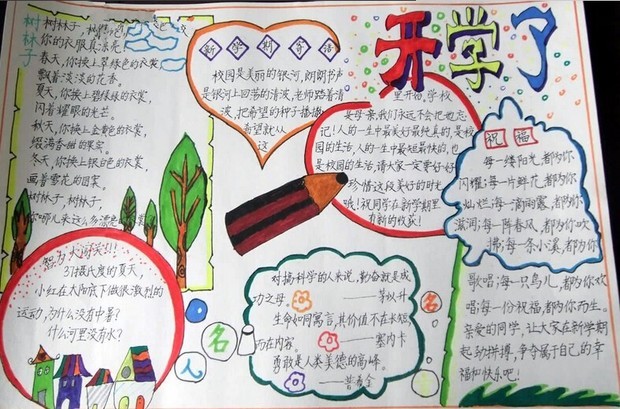 开学了
树林子
树林子,树林子,
你的衣服真漂亮
春天,你换上翠绿色的衣裳
飘着淡淡的花香。
夏天,你换上碧绿的衣裳,
闪着耀眼的光芒。
秋天,你换上金黄的衣裳,
缀满香甜的果实。
冬天,你换上银白色的衣裳,
画着雪花的图案。
树林子,树林子,
你哪儿来这么多漂亮的衣裳
新学期寄语
校园是美丽的银河,朗朗书声
是银河上回荡的清波,老师踏着清
波,把希望的种子播撒
希望就从
这
里开始,学校
是母亲,我们永远不会把也忘
记!人的一生中最美好最纯真的,是校
园的生活,人的一生中最短最快的,也
是校园的生活,请大家一定要好好
珍惜这段美好的时光
哦!祝同学在新学期里
有新的收获!
祝福
每一缕阳光,都为你
闪耀;每一片鲜花,都为你
灿烂;每一滴雨露,都为你
滋润;每一阵春风,都为你吹
拂;每一条小溪,都为你
歌唱;每一只鸟儿,都为你欢
唱;每一份祝福,都为你而生。
亲爱的同学,让大家在新学期
起劲拼搏,争夺属于自己的幸
福和快乐吧!
脑力大闯关!!!
37摄氏度的夏天,
小红在太阳底下做很激烈的
运动,为什么没有中暑?
什么河里没有水?
名人名言
对搞科学的人来说,勤奋就是成
功之母
——茅以升
生命如同寓言,其价值不在长短,
而在内容。
——塞内卡
勇敢是人类美德的高峰。
——普希金